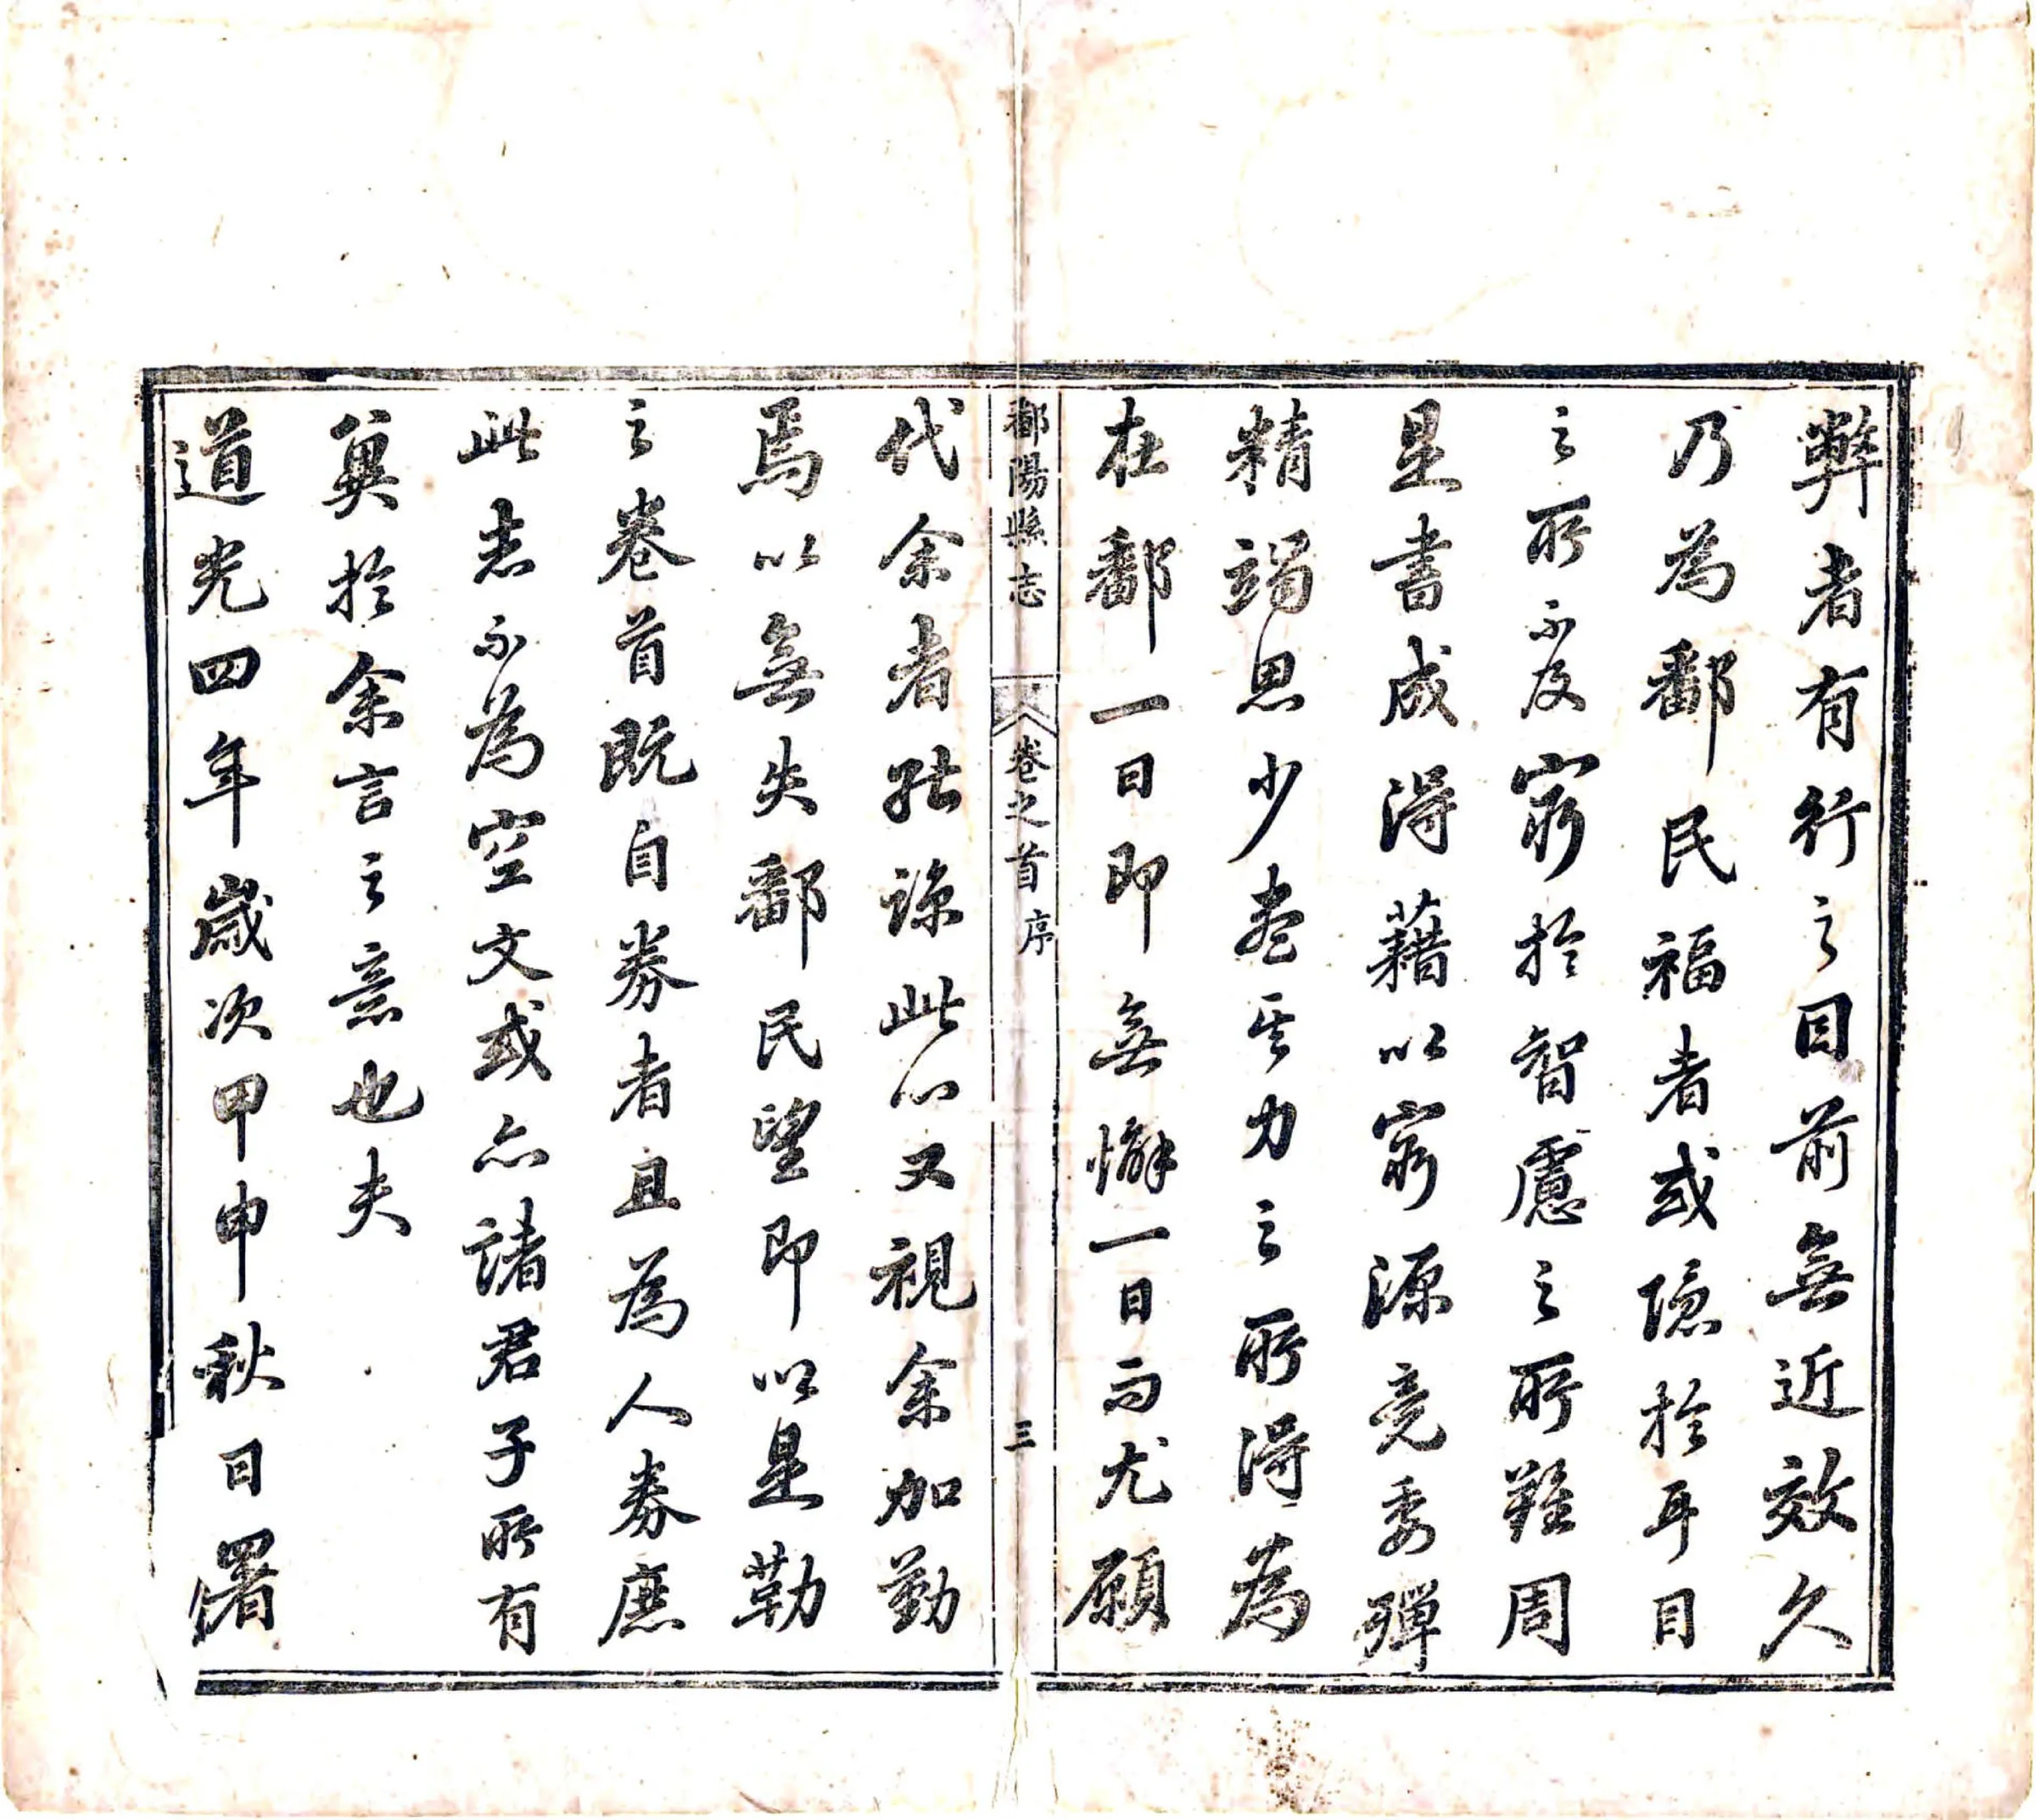 弊者有行之目前無近效久
乃為鄱民福者或隱於耳目
之所不及窮於智慮之所難周
是書成得藉以窮源竟委殫
精竭思少盡其力之所得為
在鄱一日即無懈一日而尤願
鄱陽縣志 卷之首 序 三
代余者能諒此心又視余加勤
焉以無失鄱民望即以是勒
之卷首既自券者且為人券庶
此志不為空文或亦諸君子所有
與於余言之意也夫
道光四年歲次甲申秋日署